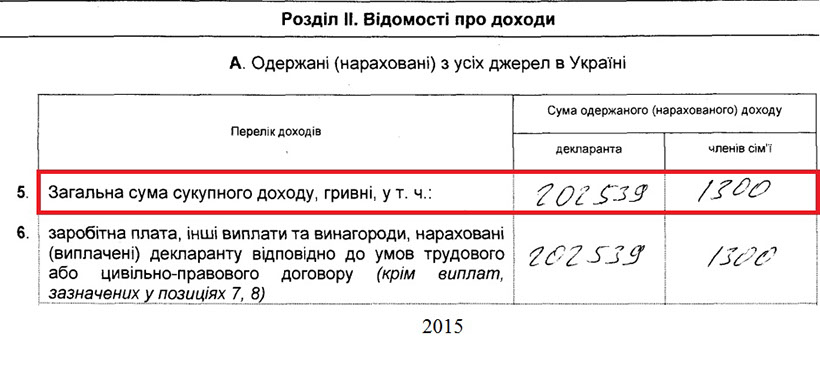 Розділ II. Відомості про доходи
А. Одержані (нараховані) з усіх джерел в Україні
Перелік доходів
Сума одержаного (нарахованого) доходу
декларанта
членів сім'ї
5. Загальна сума сукупного доходу, гривні, у т. ч.: 202539 1300
6. заробітна плата, інші виплати та винагороди, нараховані
(виплачені) декларанту відповідно до умов трудового
або цивільно-правового договору (крім виплат,
зазначених у позиціях 7, 8)
202539 1300
2015